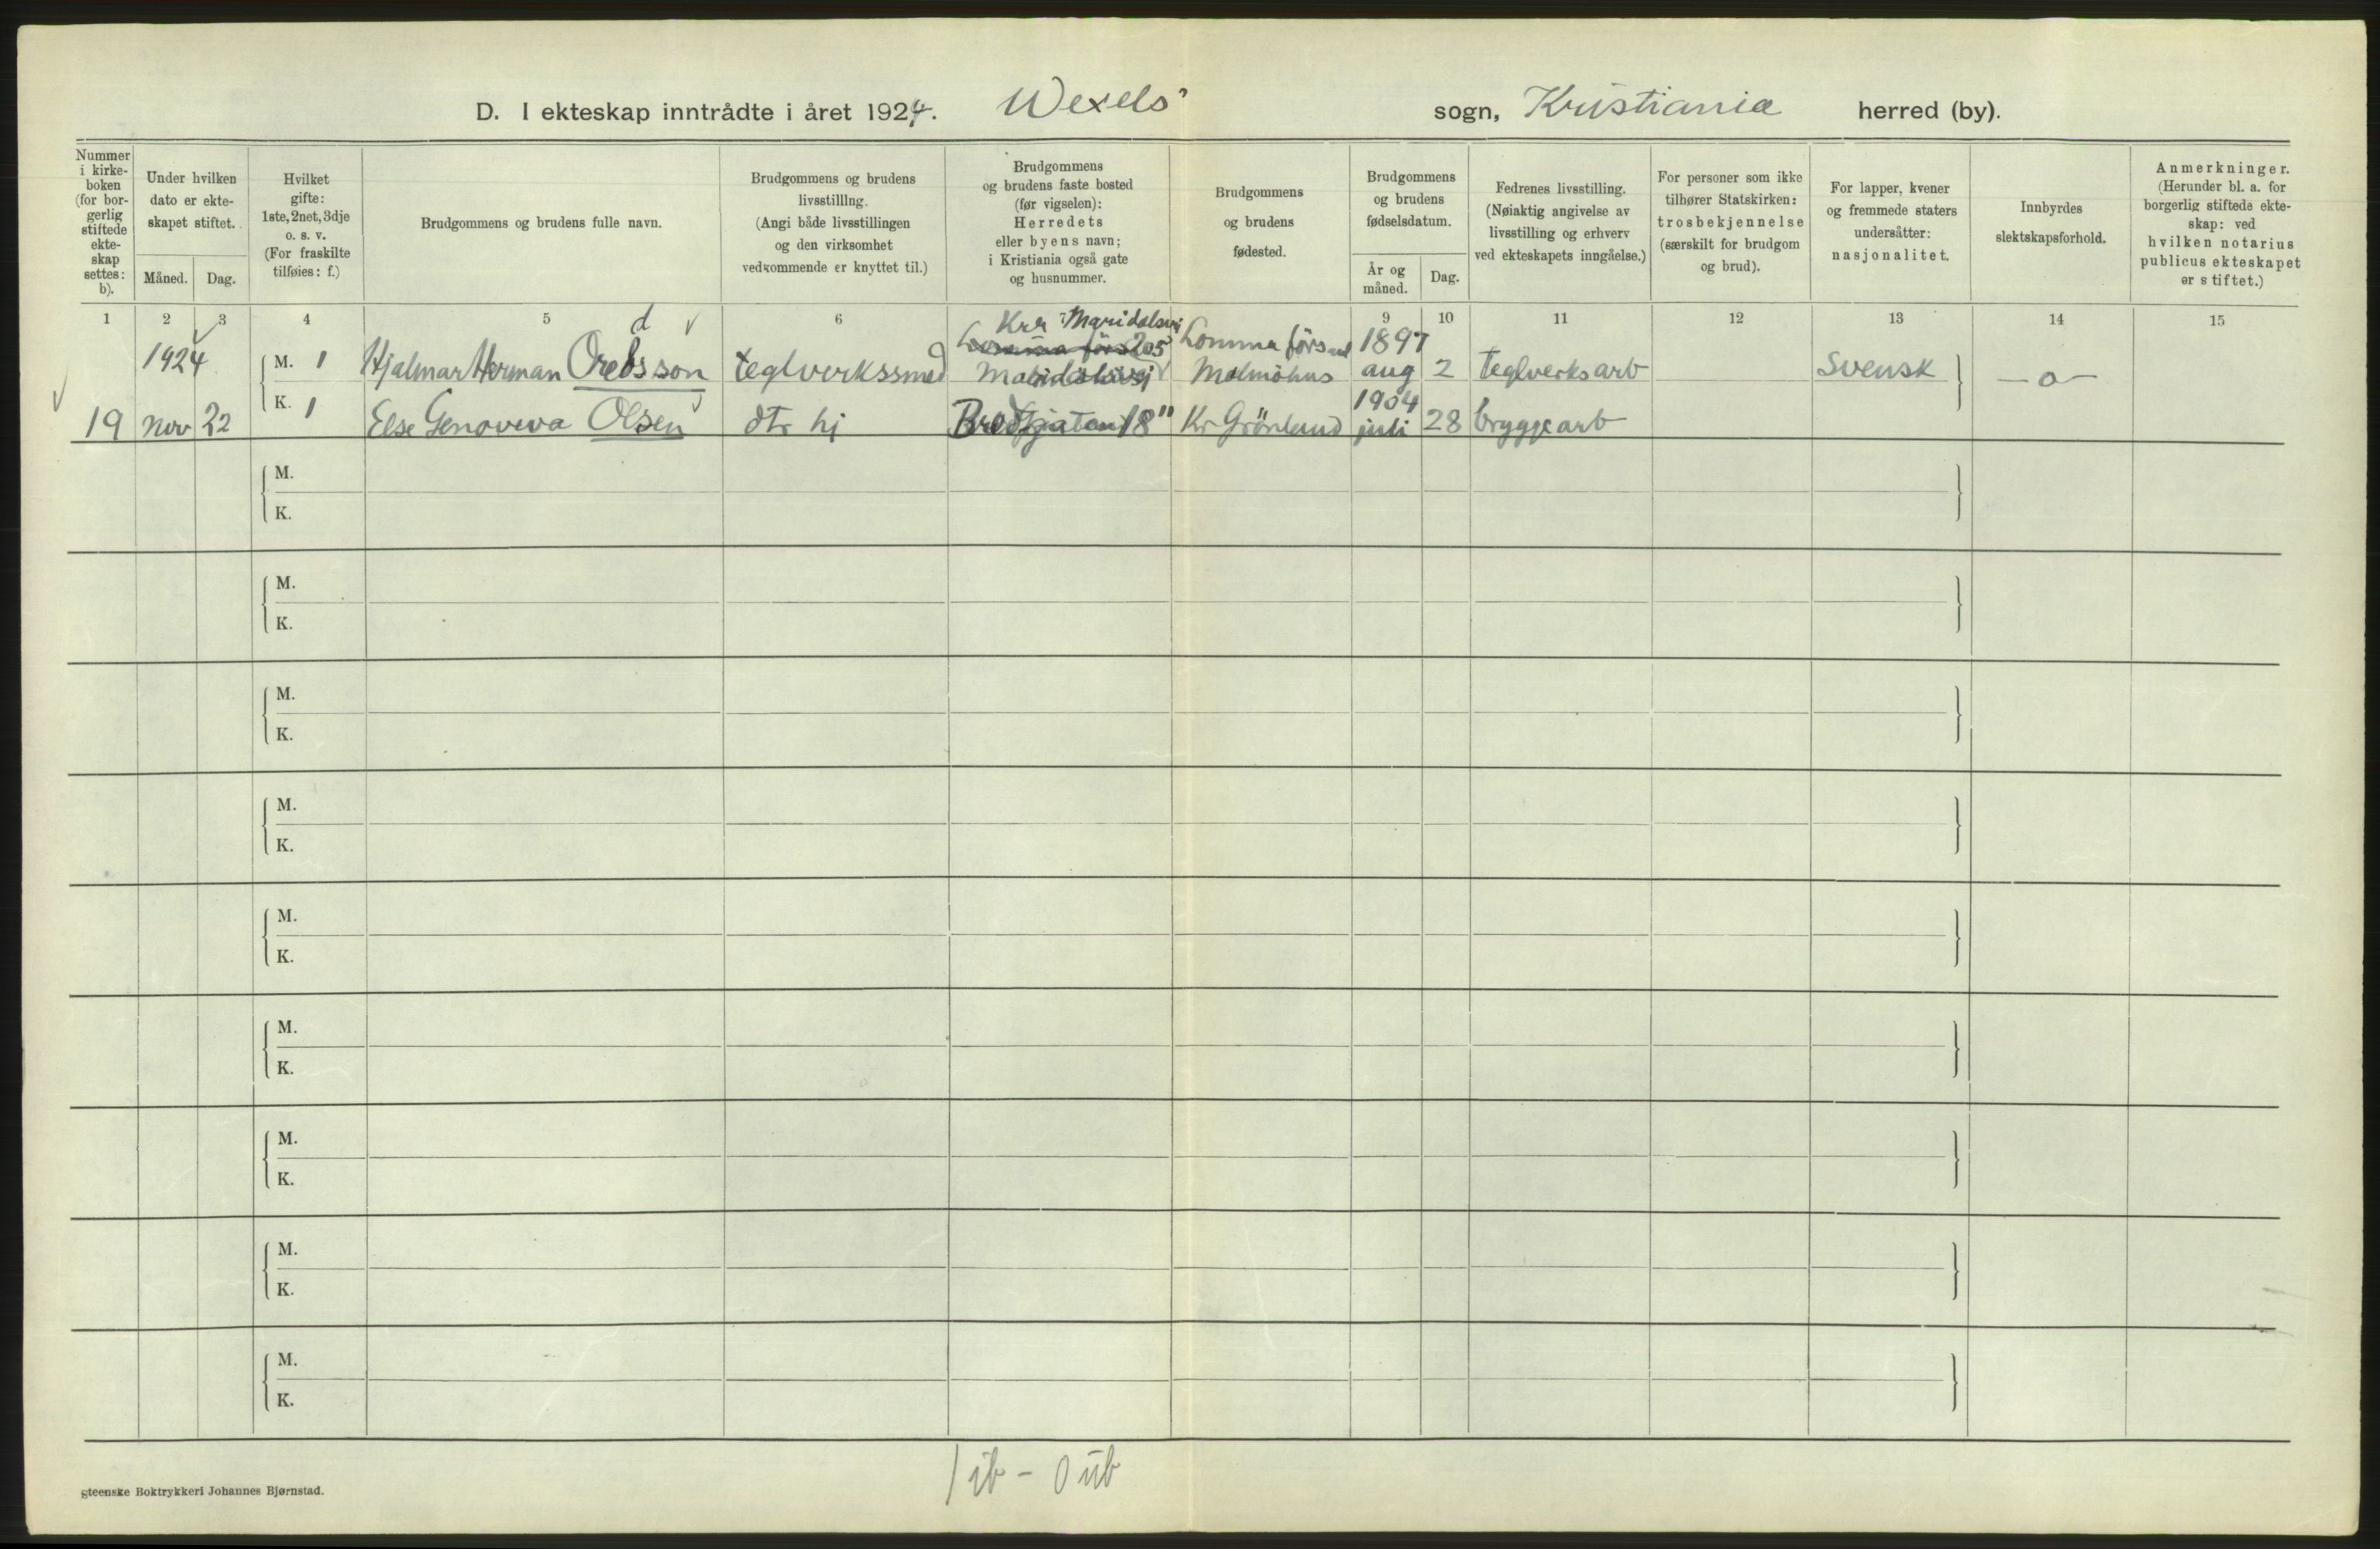 D. I ekteskap inntrådte i året 1924. Wexels' sogn, Kristiania herred (by).
Nummer
i kirke-
boken
(for bor-
gerlig
stiftede
ekte-
skap
settes:
b).
Under hvilken
dato er ekte-
skapet stiftet.
Måned.
Dag.
Hvilket
gifte:
1ste, 2net, 3dje
o. s. v.
(For fraskilte
tilføies: f.)
Brudgommens og brudens fulle navn.
Brudgommens og brudens
livsstilllng.
(Angi både livsstillingen
og den virksomhet
vedkommende er knyttet til.)
Brudgommens
og brudens faste bosted
(før vigselen):
Herredets
eller byens navn;
i Kristiania også gate
og husnummer.
Brudgommens
og brudens
fødested.
Brudgommens
og brudens
fødselsdatum.
År og
måned.
Dag.
Fedrenes livsstilling.
(Nøiaktig angivelse av
livsstilling og erhverv
ved ekteskapets inngåelse.)
For personer som ikke
tilhører Statskirken:
trosbekjennelse
(særskilt for brudgom
og brud).
For lapper, kvener
og fremmede staters
undersåtter:
nasjonalitet.
Innbyrdes
slektskapsforhold.
Anmerkninger.
(Herunder bl. a. for
borgerlig stiftede ekte-
skap: ved
hvilken notarius
publicus ekteskapet
er stiftet.)
1 2 3 4 5 6 9 10 11 12 13 14 15
d
Krа Maridalsvei
205
Lomma förs
1924 M. 1 Hjalmar Herman Orebsson teglverkssmed Malmöhus 1897 aug 2 teglverksarb Svensk —o—
19 nov 22 K. 1 Else Genoveva Olsen dtr hj Bredgaten 18" Kr Grönland 1904 juli 28 bryggearb
M.
K.
M.
K.
M.
K.
M.
K.
M.
K.
M.
K.
M.
K.
M.
K.
M.
K.
1 ib - 0 üb
gteenske Boktrykkeri Johannes Bjørnstad.